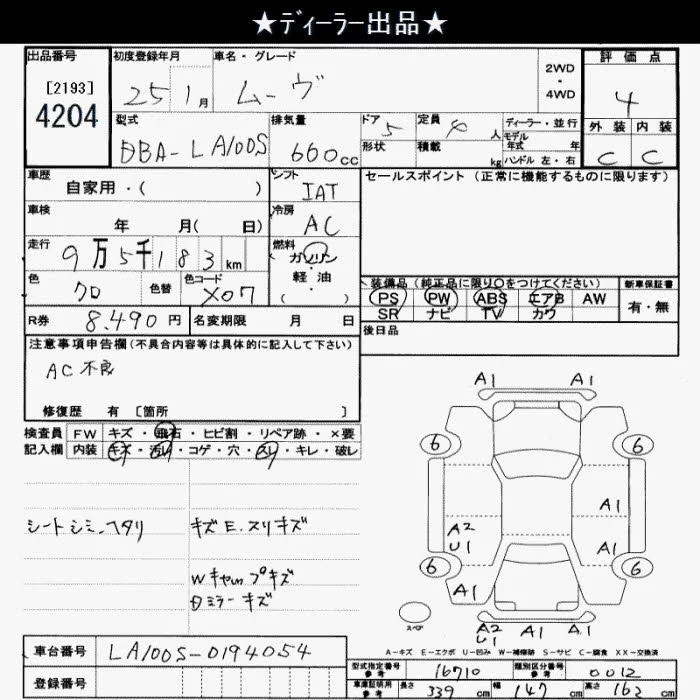 ★ディーラー出品★
出品番号
[2193]
4204
初度登録年月
25 1月
車名・グレード
ムーヴ
2WD
・
4WD
評価点
4
外装 内装
C C
型式
DBA-LA100S
排気量
660cc
ドア 5
形状
定員 4人
積載 kg
ディーラー・並行
モデル
年式 年
ハンドル 左・右
車歴
自家用・( )
シフト
IAT
車検
年 月( 日)
冷房
AC
走行
9万5千183km
燃料
ガソリン
・
軽・油
( )
色
クロ
色替
色コード
X07
R券 8,490円
名変期限 月 日
セールスポイント (正常に機能するものに限ります)
装備品 (純正品に限り○をつけてください)
PS PW ABS エアB AW
SR ナビ TV カワ
新車保証書
有・無
後日品
注意事項申告欄(不具合内容等は具体的に記入して下さい)
AC不良
修復歴 有 〔箇所 〕
検査員
記入欄
FW キズ・飛石・ヒビ割・リペア跡・×要
内装 キズ・汚れ・コゲ・穴・スレ・キレ・破レ
シートシミ、ヘタリ
キズE、スリキズ
Wキャップキズ
ミラーキズ
A1 A1
6 6
A1
A2
U1
A1
6 6
A1
A2
U1
A1 A1
スペア
A-キズ E-エクボ U-凹み W-補修跡 S-サビ C-腐食 XX-交換済
車台番号 LA100S-0194054
登録番号
型式指定番号
参考
16710
類別区分番号
参考
0012
車庫証明用
参考
長さ 339cm 幅 147cm 高さ 162cm